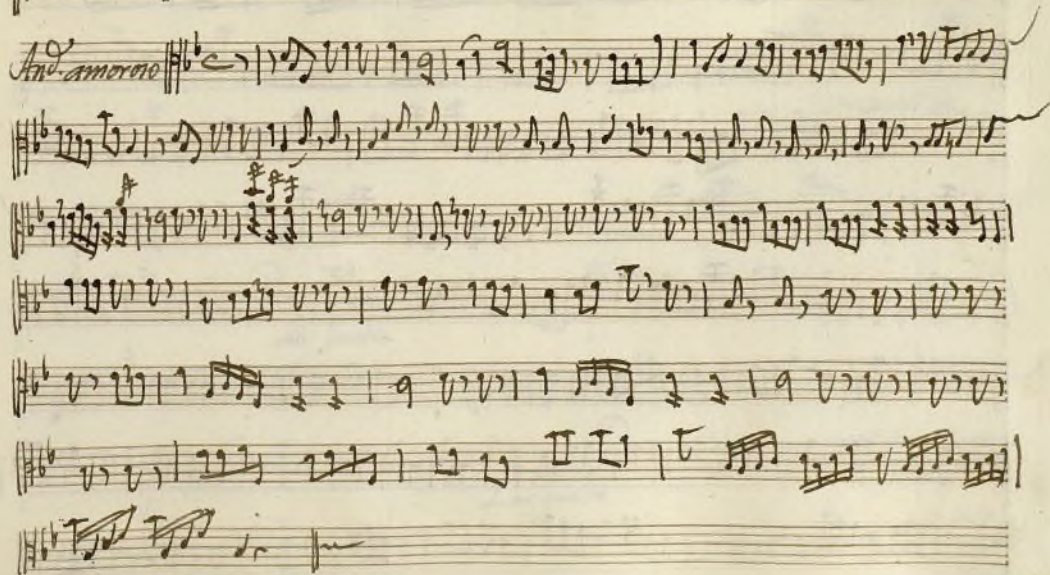 And.º amoroso